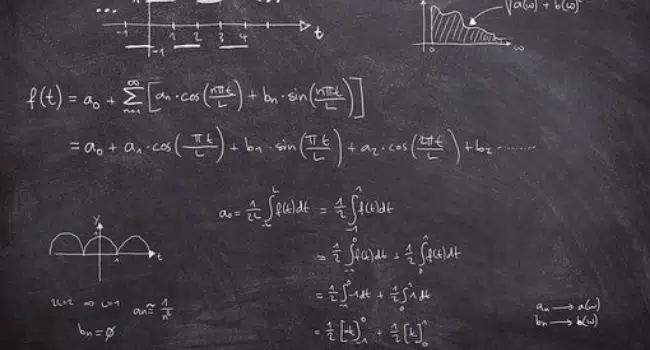 ... ...
-1 1 2 3 4 t
-1
√a(ω) + b(ω)
0 ω
f(t) = a₀ + ∑ₙ₌₁^∞ [aₙ·cos(nπt/L) + bₙ·sin(nπt/L)]
= a₀ + a₁·cos(πt/L) + b₁·sin(πt/L) + a₂·cos(2πt/L) + b₂·.......
a₀ = 1/2L ∫₋L^L f(t)dt = 1/2 ∫₋₁^1 f(t)dt
= 1/2 ∫₋₁^0 f(t)dt + 1/2 ∫₀^1 f(t)dt
y
1 t
= 1/2 ∫₋₁^0 -1dt + 1/2 ∫₀^1 1dt
2L=2 ⇒ L=1 aₙ ≈ 1/n²
aₙ → a(ω)
bₙ = ∅ bₙ → b(ω)
= 1/2 [-t]₋₁^0 + 1/2 [t]₀^1